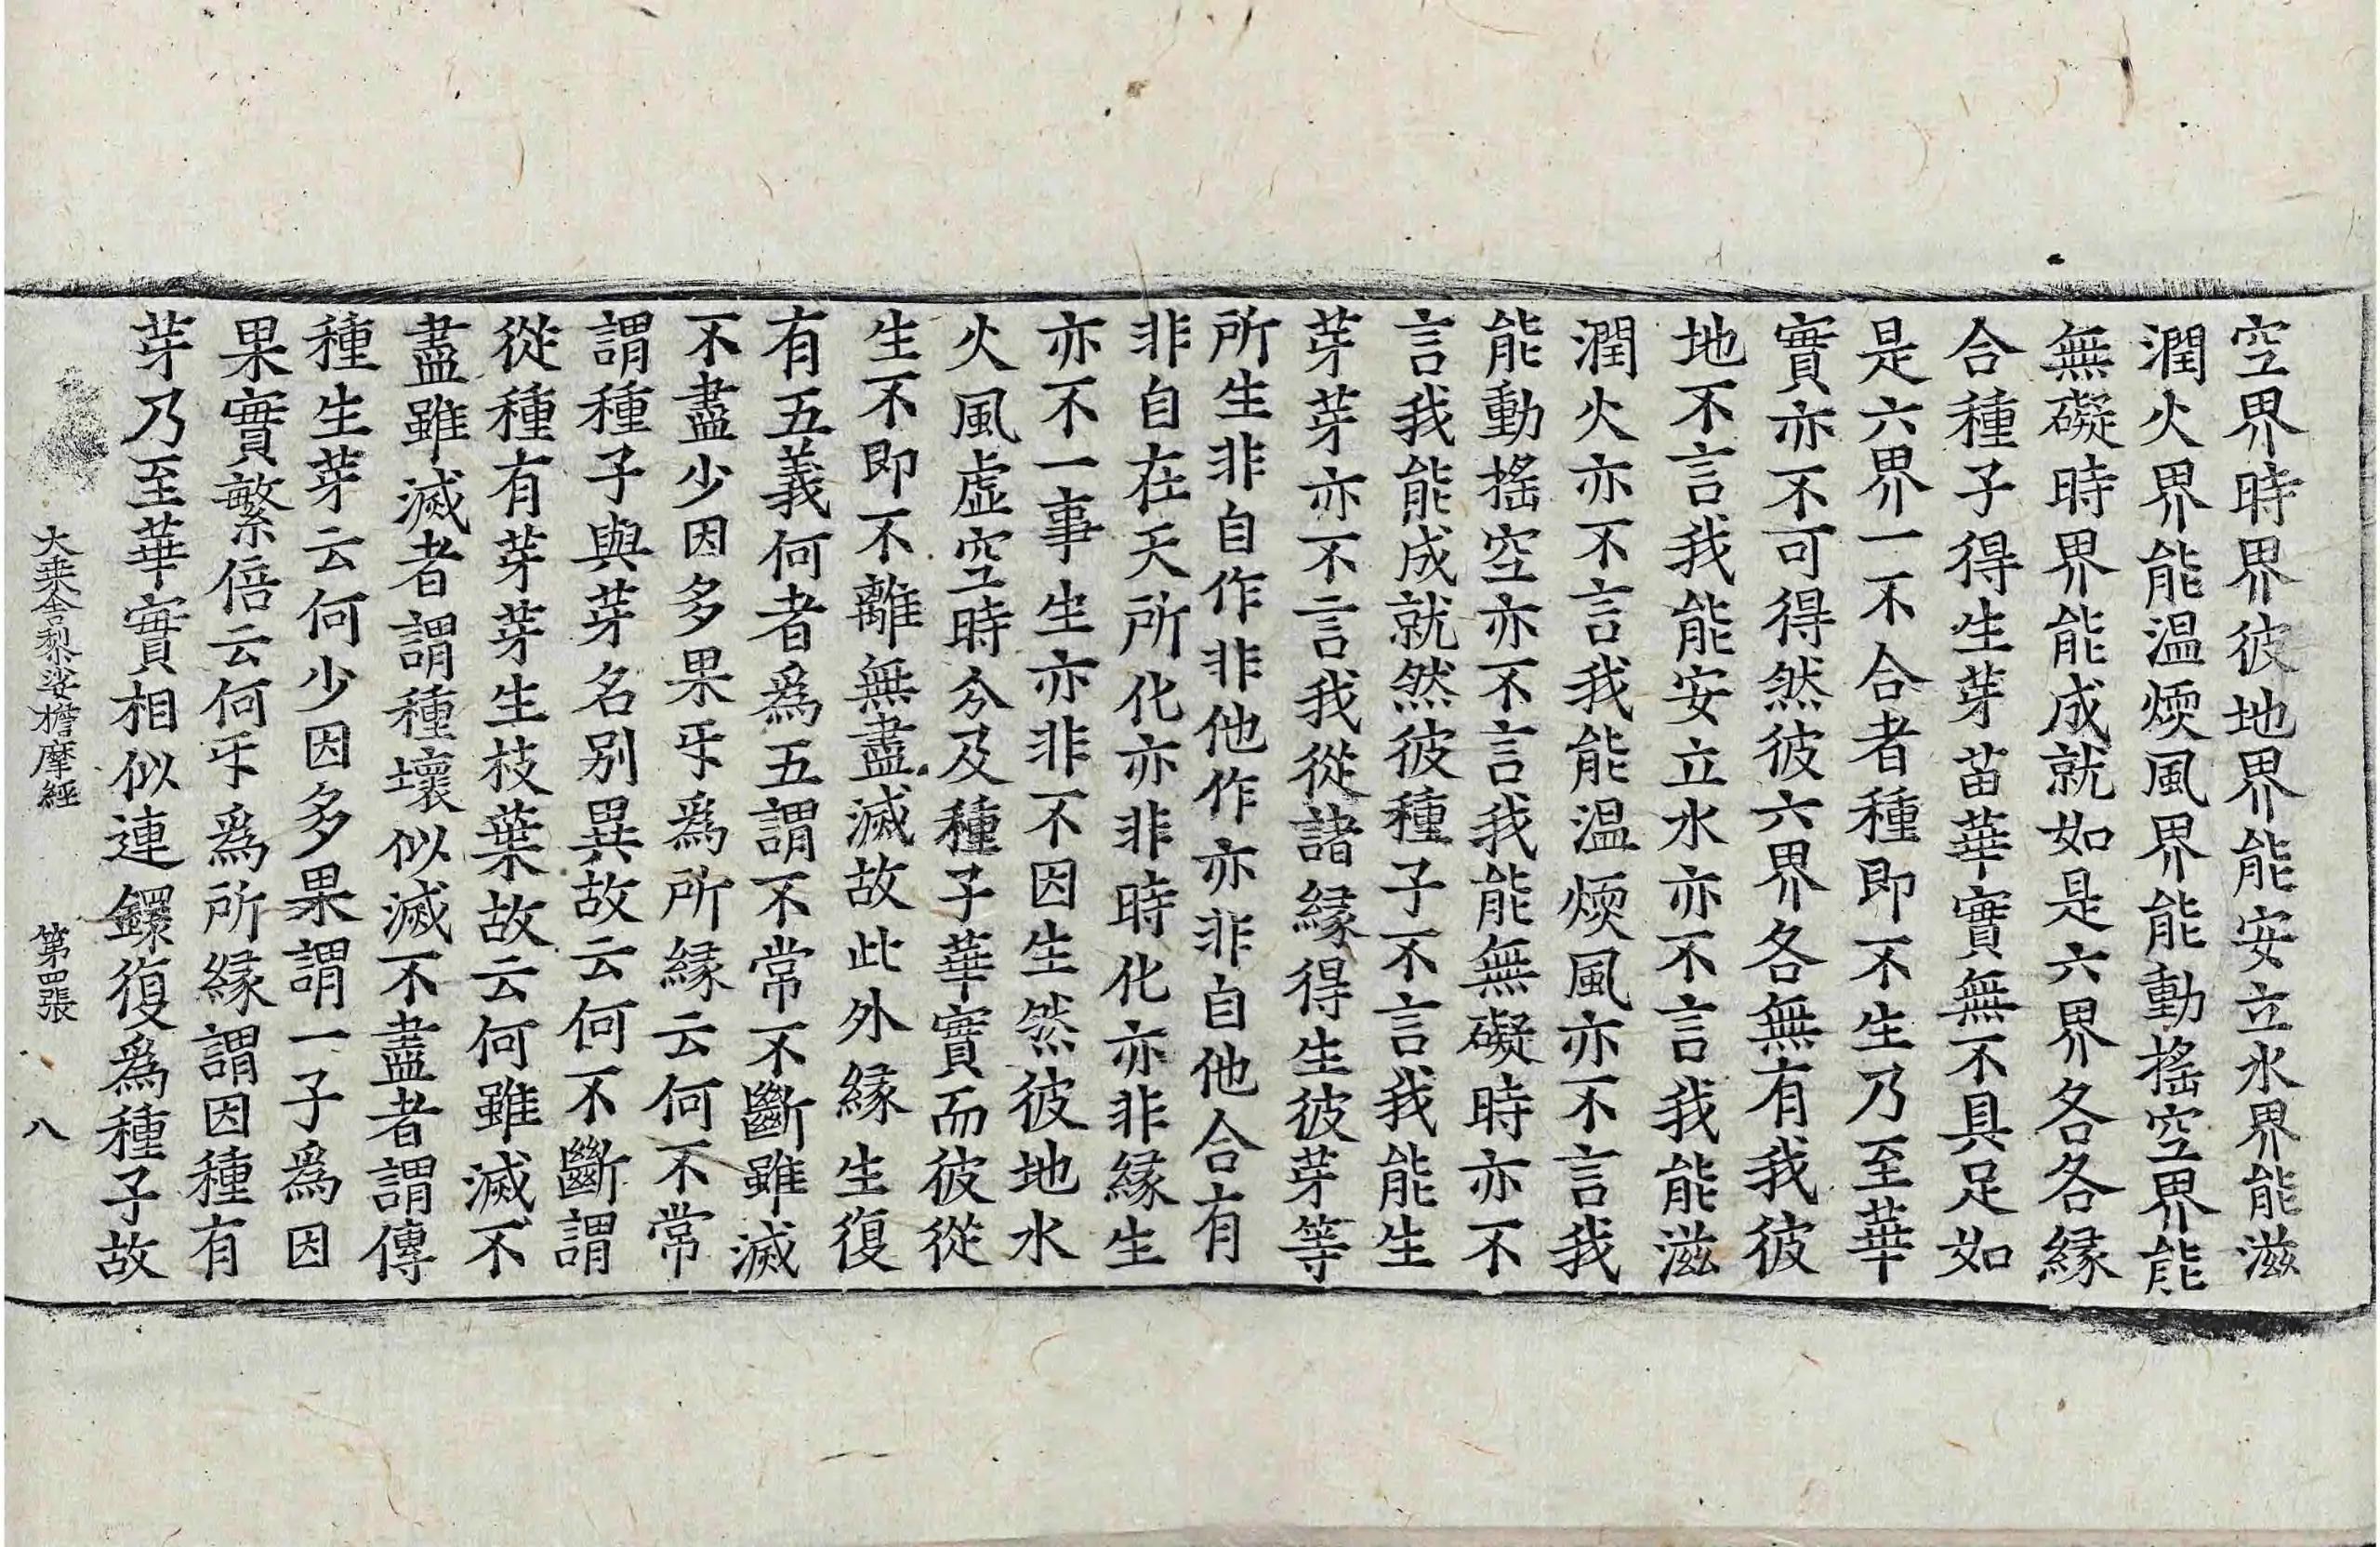 空界時界彼地界能安立水界能滋
潤火界能温煗風界能動搖空界能
無礙時界能成就如是六界各各緣
合種子得生芽苗華實無不具足如
是六界一不合者種即不生乃至華
實亦不可得然彼六界各無有我彼
地不言我能安立水亦不言我能滋
潤火亦不言我能温煗風亦不言我
能動搖空亦不言我能無礙時亦不
言我能成就然彼種子不言我能生
芽芽亦不言我從諸緣得生彼芽等
所生非自作非他作亦非自他合有
非自在天所化亦非時化亦非緣生
亦不一事生亦非不因生然彼地水
火風虛空時分及種子華實而彼從
生不即不離無盡滅故此外緣生復
有五義何者爲五謂不常不斷雖滅
不盡少因多果㸦爲所緣云何不常
謂種子與芽名別異故云何不斷謂
從種有芽芽生枝葉故云何雖滅不
盡雖滅者謂種壞似滅不盡者謂傳
種生芽云何少因多果謂一子爲因
果實繁倍云何㸦爲所緣謂因種有
芽乃至華實相似連鐶復爲種子故
大乗舎梨娑擔摩經 第四張 八